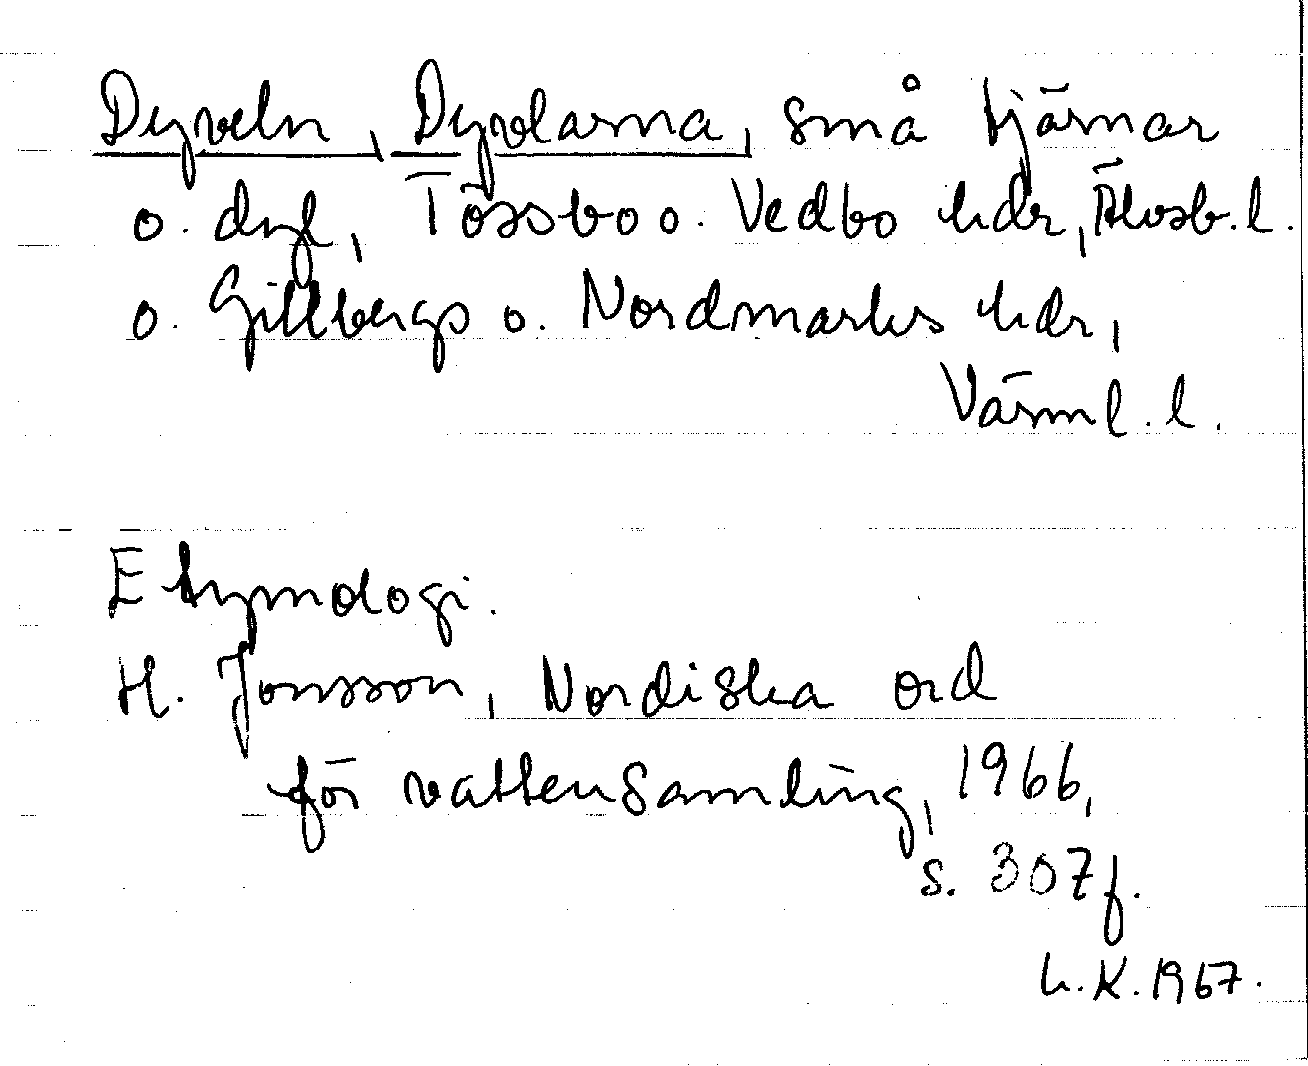 Dyveln, Dyvlarna, små tjärnar
o. dyl, Tössbo o. Vedbo hdr, Älvsb. l.
o. Gillbergs o. Nordmarks hdr,
Värml. l.
Etymologi.
H. Jonsson, Nordiska ord
för vattensamling, 1966,
s. 307 f.
L. K. 1967.